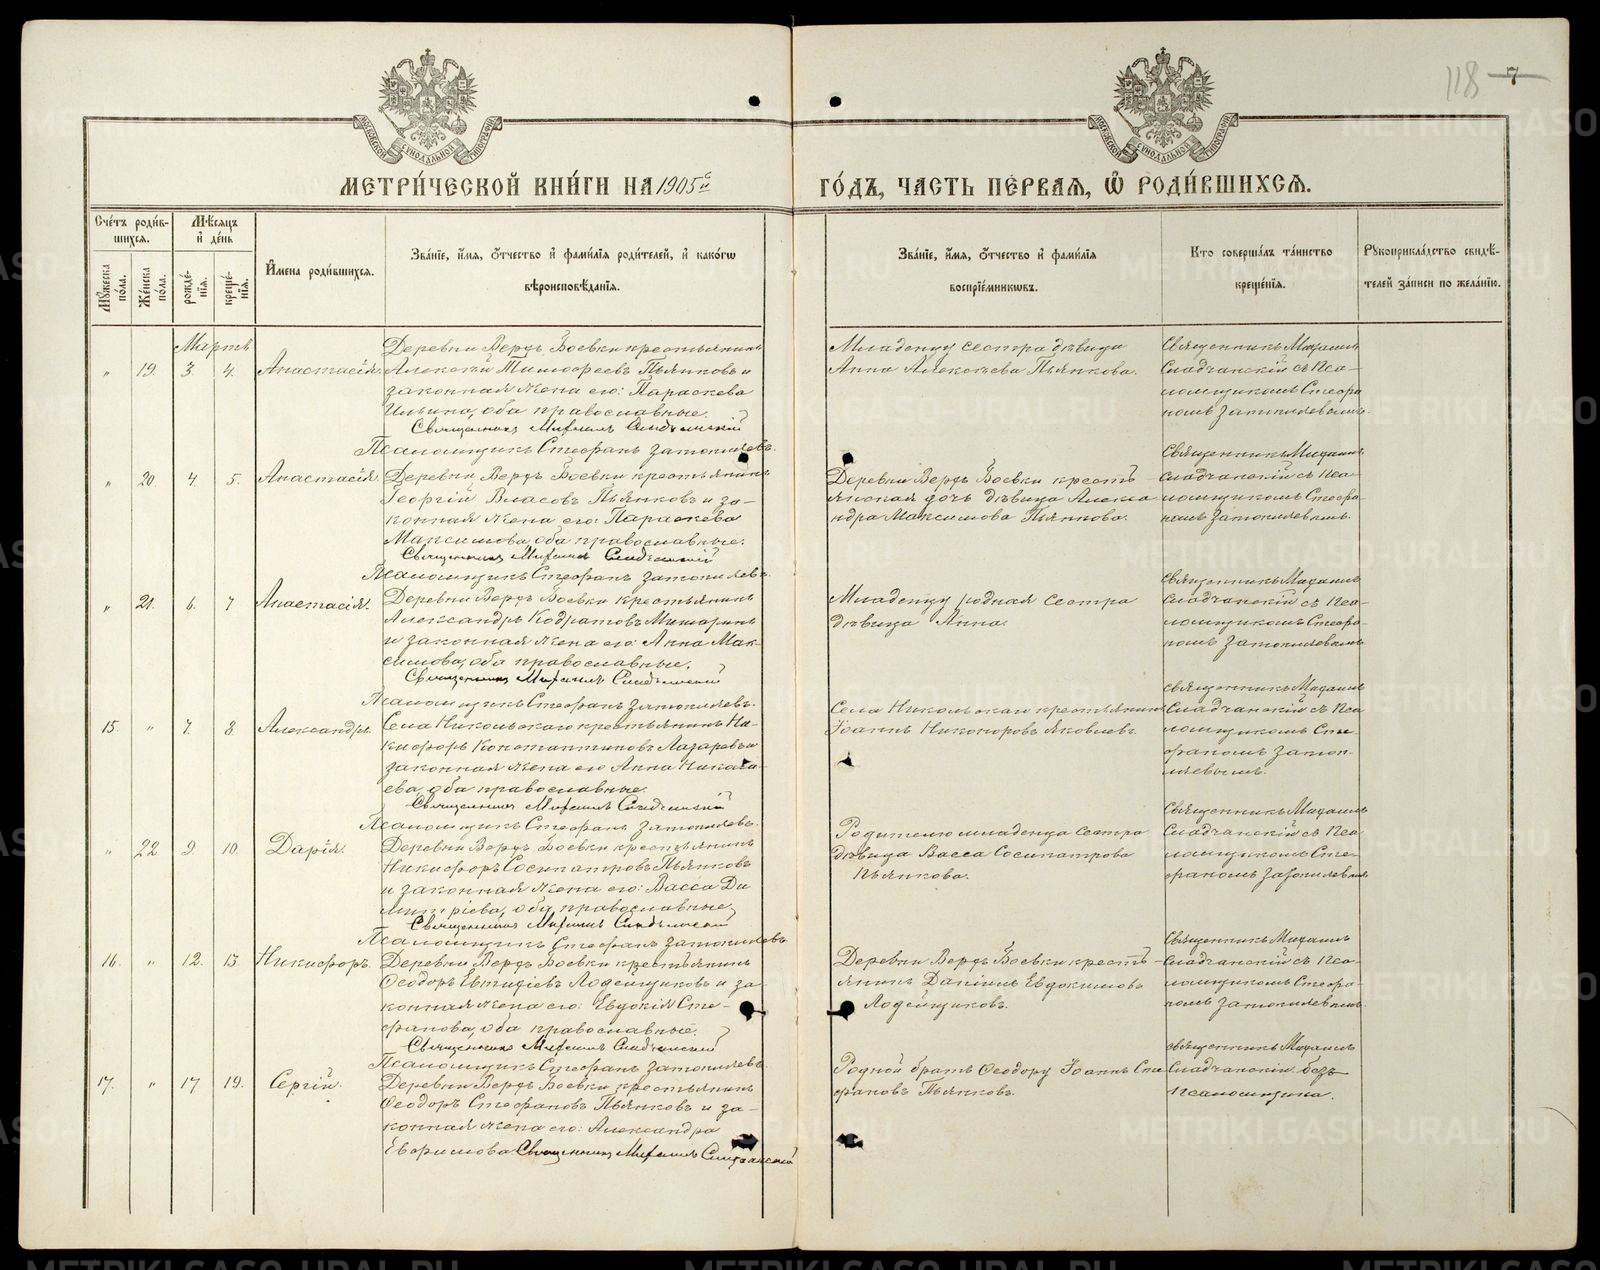 118 7
МОСКОВСКОЙ СѴНОДАЛЬНОЙ ТИПОГРАФІИ
МОСКОВСКОЙ СѴНОДАЛЬНОЙ ТИПОГРАФІИ
МЕТРИ́ЧЕСКОЙ КНИ́ГИ НА 1905й
ГО́ДЪ, ЧАСТЬ ПЕ́РВАЯ, Ѡ РОДИ́ВШИХСЯ.
Сче́тъ роди́в-
шихся.
Мѣ́сяцъ
и҆ де́нь
Мꙋ́жеска по́ла.
Же́нска по́ла.
рожде́-
нїя.
креще́-
нїя.
И҆мена роди́вшихся.
Зва́нїе, и҆́мя, ѻ҆́тчество и҆ фами́лїя роди́телей, и҆ како́гѡ
вѣроисповѣ́данїя.
Зва́нїе, и҆́мя, ѻ҆́тчество и҆ фами́лїя
воспрїе́мникѡвъ.
Кто соверша́лъ та́инство
креще́нїя.
Рꙋкоприкла́дство свидѣ́-
телей за́писи по жела́нїю.
Марта
„ 19. 3. 4. Анастасія.
Деревни Верхъ Боевки крестьянинъ
Алексѣй Тимофеевъ Пьянковъ и
законная жена его: Параскева
Ильина, оба православные.
Священникъ Михаилъ Сладчанскій
Псаломщикъ Стефанъ Затопляевъ.
Младенцу сестра дѣвица
Анна Алексѣева Пьянкова.
Священникъ Михаилъ
Сладчанскій съ Пса-
ломщикомъ Стефа
номъ Затопляевымъ.
„ 20. 4. 5. Анастасія.
Деревни Верхъ Боевки крестьянинъ
Георгій Власовъ Пьянковъ и за-
конная жена его: Параскева
Максимова, оба православные.
Священникъ Михаилъ Сладчанскій
Псаломщикъ Стефанъ Затопляевъ.
Деревни Верхъ Боевки кресть-
янская дочь дѣвица Алекса-
ндра Максимова Пьянкова.
Священникъ Михаилъ
Сладчанскій съ Пса-
ломщикомъ Стефа-
номъ Затопляевымъ.
„ 21. 6. 7 Анастасія.
Деревни Верхъ Боевки крестьянинъ
Александръ Кодратовъ
и законная жена его: Анна Мак-
симова, оба православные.
Священникъ Михаилъ Сладчанскій
Псаломщикъ Стефанъ Затопляевъ.
Младенцу родная сестра
дѣвица Анна.
Священникъ Михаилъ
Сладчанскій съ Пса-
ломщикомъ Стефа-
номъ Затопляевымъ
15. „ 7. 8. Александръ.
Села Никольскаго крестьянинъ Ни-
кифоръ Константиновъ Лазаревъ и
законная жена его Анна Никола-
ева, оба православные.
Священникъ Михаилъ Сладчанскій
Псаломщикъ Стефанъ Затопляевъ.
Села Никольскаго крестьянинъ
Іоаннъ Никоноровъ Яковлевъ.
Священникъ Михаилъ
Сладчанскій съ Пса
ломщикомъ Сте-
фаномъ Затоп-
ляевымъ.
„ 22 9. 10. Дарія.
Деревни Верхъ Боевки крестьянинъ
Никифоръ Сосипатровъ Пьянковъ
и законная жена его: Васса Ди
митріева, оба православные,
Священникъ Михаилъ Сладчанскій
Псаломщикъ Стефанъ Затопляевъ
Родителю младенца сестра
дѣвица Васса Сосипатрова
Пьянкова.
Священникъ Михаилъ
Сладчанскій съ Пса
ломщикомъ Сте-
фаномъ Затопляевымъ
16. „ 12. 13. Никифоръ.
Деревни Верхъ Боевки крестьянинъ
Ѳеодоръ Евтихіевъ Лодейщиковъ и за-
конная жена его: Евдокія Сте-
фанова, оба православные.
Священникъ Михаилъ Сладчанскій
Псаломщикъ Стефанъ Затопляевъ
Деревни Верхъ Боевки кресть-
янинъ Даніилъ Евдокимовъ
Лодейщиковъ.
Священникъ Михаилъ
Сладчанскій съ Пса-
ломщикомъ Стефа-
номъ Затопляевымъ
17. „ 17 19. Сергій.
Деревни Верхъ Боевки крестьянинъ
Ѳеодоръ Стефановъ Пьянковъ и за-
конная жена его: Александра
Евфимова Священникъ Михаилъ Сладчанскій
Родной братъ Ѳеодору Іоаннъ Сте
фановъ Пьянковъ.
Священникъ Михаилъ
Сладчанскій безъ
псаломщика.
METRIKI.GASO-URAL.RU